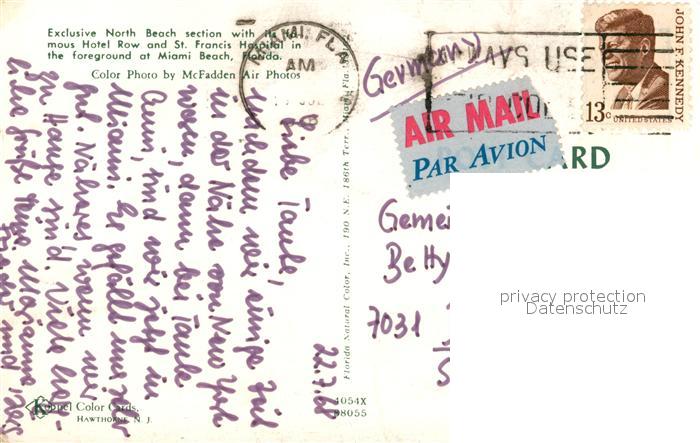 Exclusive North Beach section with its fa-
mous Hotel Row and St. Francis Hospital in
the foreground at Miami Beach, Florida.
Color Photo by McFadden Air Photos
MIAMI, FLA
AM
ALWAYS USE
JOHN F. KENNEDY
13c
UNITED STATES
Germany
AIR MAIL
PAR AVION
CARD
22.7.68
Liebe Tante,
Nachdem wir einige Zeit
in der Nähe von New York
waren, dann bei Tante
Anni, sind wir jetzt in
Miami. Es gefällt uns sehr
gut. Näheres wenn wir
zu Hause sind. Viele herz-
liche Grüße
und
Florida Natural Color, Inc., 190 N.E. 186th Terr., Miami, Fla.
Gemei
Betty
7031
privacy protection
Datenschutz
4054X
98055
Koppel Color Cards
HAWTHORNE, N. J.